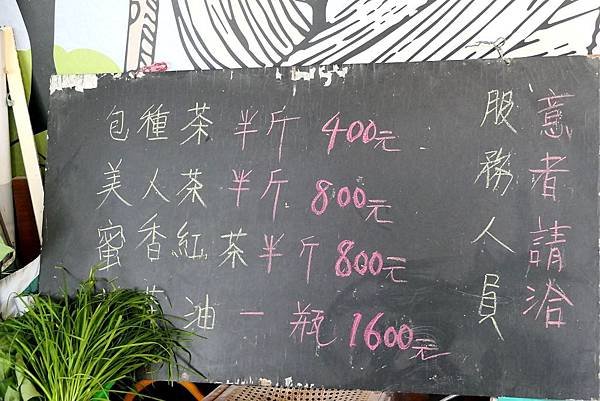 包種茶 半斤 400元
美人茶 半斤 800元
蜜香紅茶半斤 800元
茶油一瓶 1600元
意者請洽
服務人員